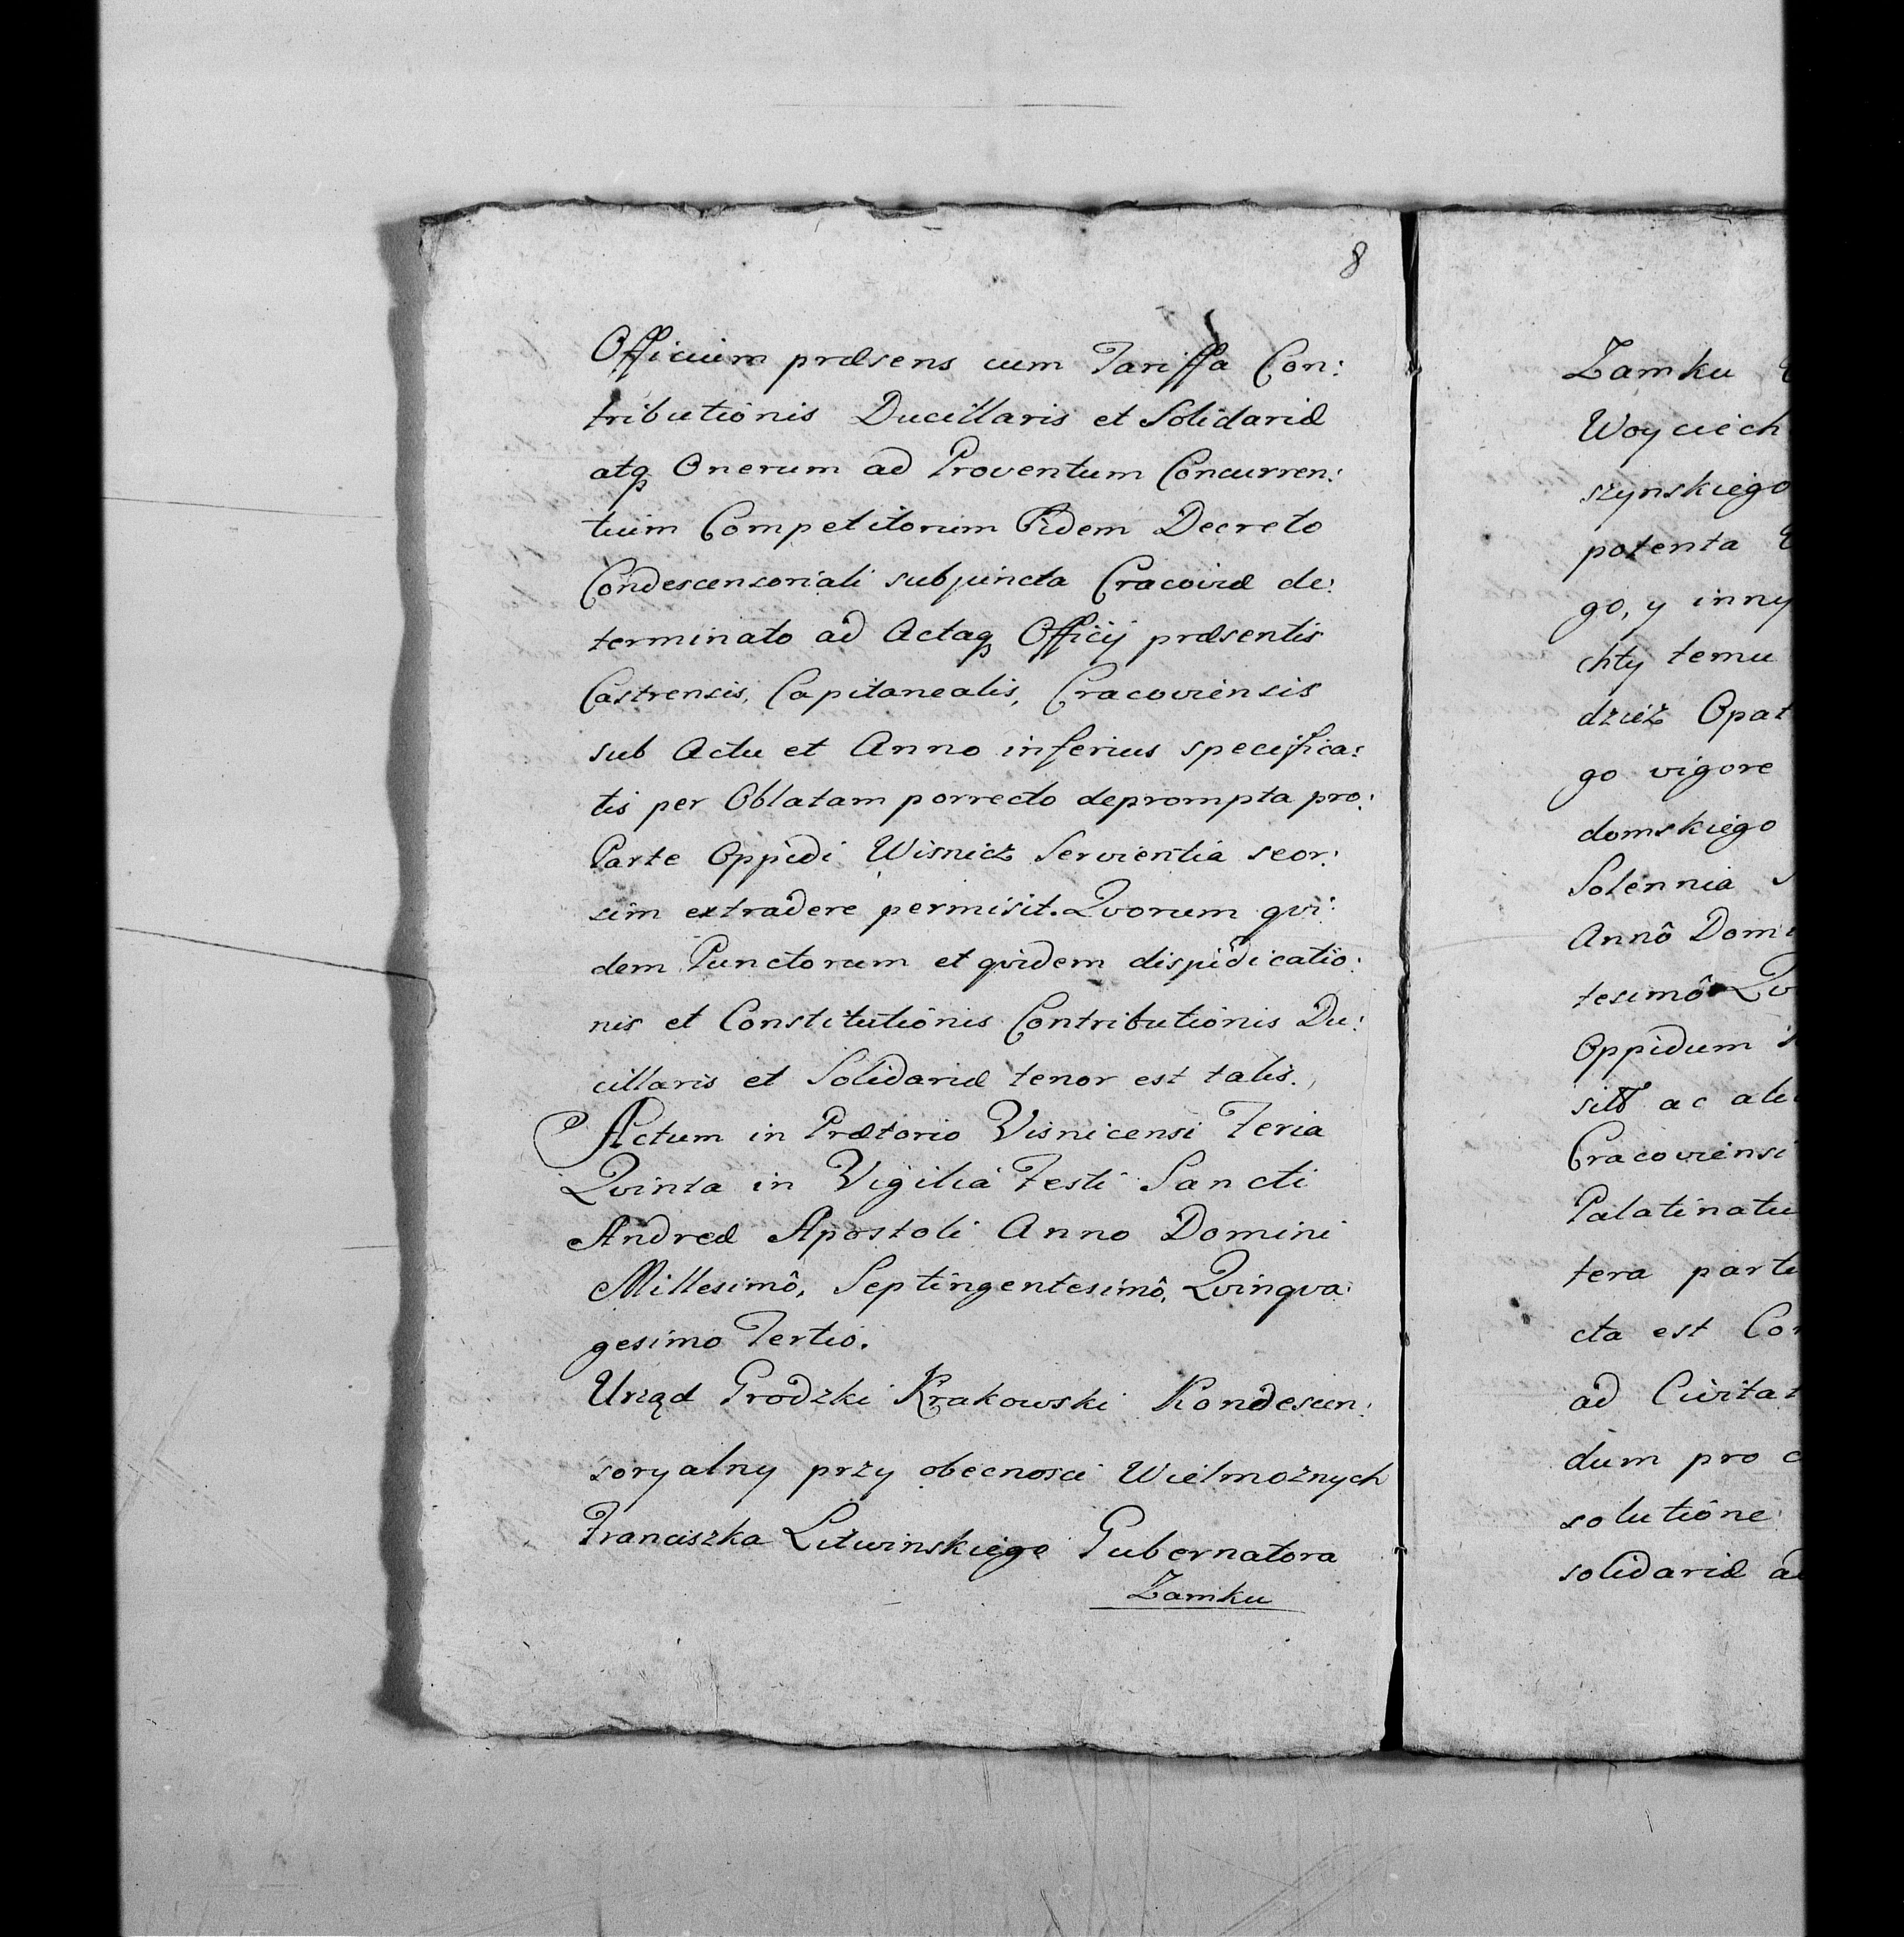 8
Officium præsens cum Tariffa Con:
tributionis Ducillaris et Solidariæ
atq Onerum ad Proventum Concurren:
tium Competitorum Eidem Decreto
Condescensoriali subjuncta Cracoviæ de:
terminato ad Actaq Officij præsentis
Castrensis, Capitanealis, Cracoviensis
sub Actu et Anno inferius specifica:
tis per Oblatam porrecto deprompta pro:
Parte Oppidi Wisnicz Servientia seor:
sim extradere permisit. Qvorum qvi:
dem Punctorum et qvidem disjudicatio:
nis et Constitutionis Contributionis Du:
cillaris et Solidariæ tenor est talis.
Actum in Prætorio Visnicensi Feria
Qvinta in Vigilia Festi Sancti
Andreæ Apostoli Anno Domini
Millesimô, Septingentesimô, Qvinqva:
gesimo Tertio.
Urząd Grodzki Krakowski Kondescen:
soryalny przy obecnosci Wielmoznych
Franciszka Litwinskiego Gubernatora
Zamku
Zamku
Woyciech
szynskiego
potenta
go, y inny
chty temu
dzież Opat
go vigore
domskiego
Solennia
Annô Domi
tesimô Qv
Oppidum
sitt ac ali
Cracoviensi
Palatinatu
tera parte
cta est Con
ad Civitat
dum pro
solutione
solidariæ ad